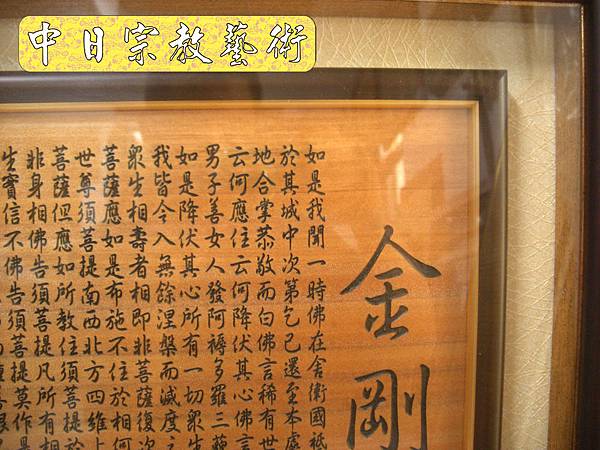 中日宗教藝術
金剛
如是我聞一時佛在舍衛國祇
於其城中次第乞已還至本處
地合掌恭敬而白佛言稀有世
云何應住云何降伏其心佛言
男子善女人發阿褥多羅三藐
如是降伏其心所有一切眾生
我皆令入無餘涅槃而滅度之
眾生相壽者相即非菩薩復次
菩薩應如是布施不住於相何
世尊須菩提南西北方四維上
菩薩但應如所教住須菩提於
非身相佛告須菩提凡所有相
生實信不佛告須菩提莫作是